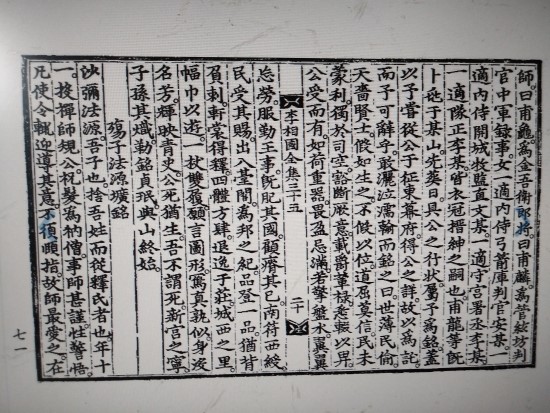 師。曰甫龜。爲金吾衛郎將。曰甫蘆。爲管絃坊判
官中軍錄事。女一適內侍弓箭庫判官安某。一
適內侍開城牧監直文某。一適守宮署丞李某
一適隊正李某。皆衣冠搢紳之嗣也。甫龍等旣
卜兆于某山。先葬日。具公之行狀。屬予爲銘。蓋
以予嘗從公于征東幕府。得公之詳。故以爲託
而予可辭乎。敢灑泣濡翰而銘之曰。世薄民偷。
天嗇賢士。假如生之。不假以位。道屈莫信。民未
蒙利。獨於司空。斷厥意。載爵祿。以畀
公受而有。如荷重器。畏盈忌滿。若擎盤水。翼翼
李相國全集三十五 二十
忩勞。服勤王事。旣肥其國。顧瘠其已。南符西鉞。
民受其賜。出入臺閣。爲邦之紀。品登一品。猶背
負刺。軒裳得釋。四體方肆。退逸于莊。城西之里。
幅巾以遊。一杖雙屐。願言圖形。寫眞孰似。身歿
名芳。輝映靑史。人死猶生。吾不謂死。新宮之寧。
子孫其熾。勒銘貞珉。與山終始。
殤子法源壙銘
沙彌法源。吾子也。捨吾姓而從釋氏者也。年十
一。投禪師規公。祝髮爲衲僧。事師甚謹。性警悟
凡使令輒迎道其意。不須頤指。故師最愛之。在
七一